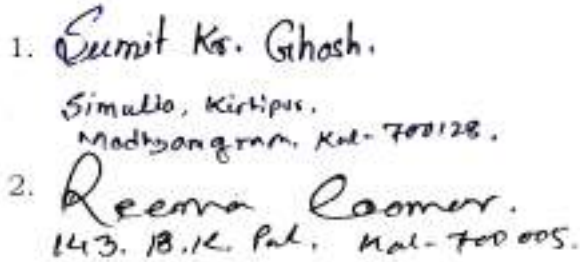 1. Sumit Kr. Ghosh.
Simulia, Kirtipur,
Madhyamgram, Kol- 700128.
2. Reema Coomar.
143. B.K. Pal. Kol- 700005.